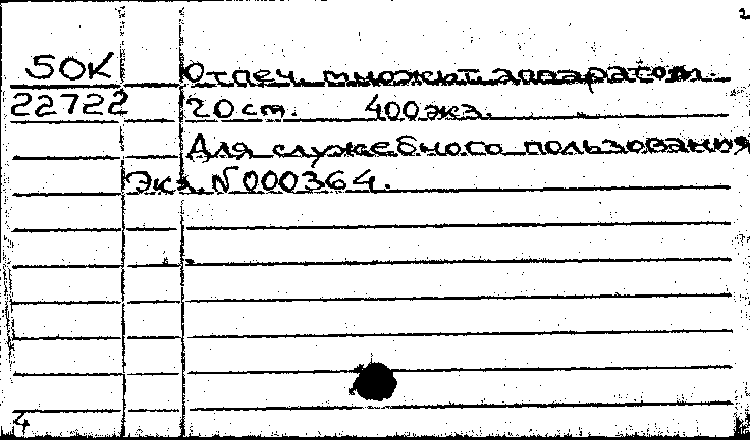 2
50К Отпеч. множит. аппаратом.
22722 20 ст. 400 экз.
Для служебного пользования
Экз. N 000364.
4